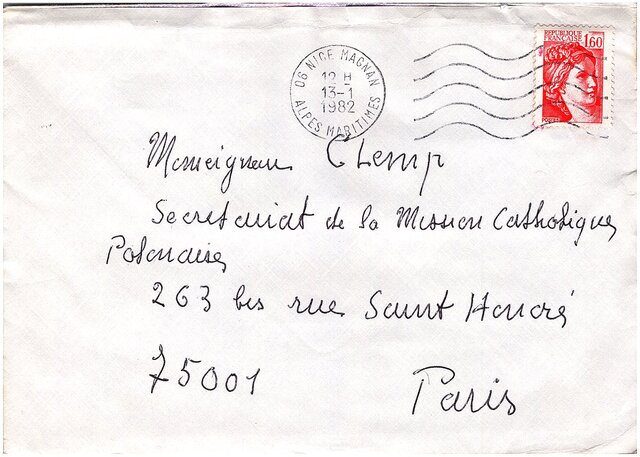 RÉPUBLIQUE
FRANÇAISE 1,60
06 NICE MAGNAN
12 H
13-1
1982
ALPES MARITIMES
Monseigneur Glemp
Secretariat de la Mission Catholique
Polonaise
263 bis rue Saint Honoré
75001 Paris